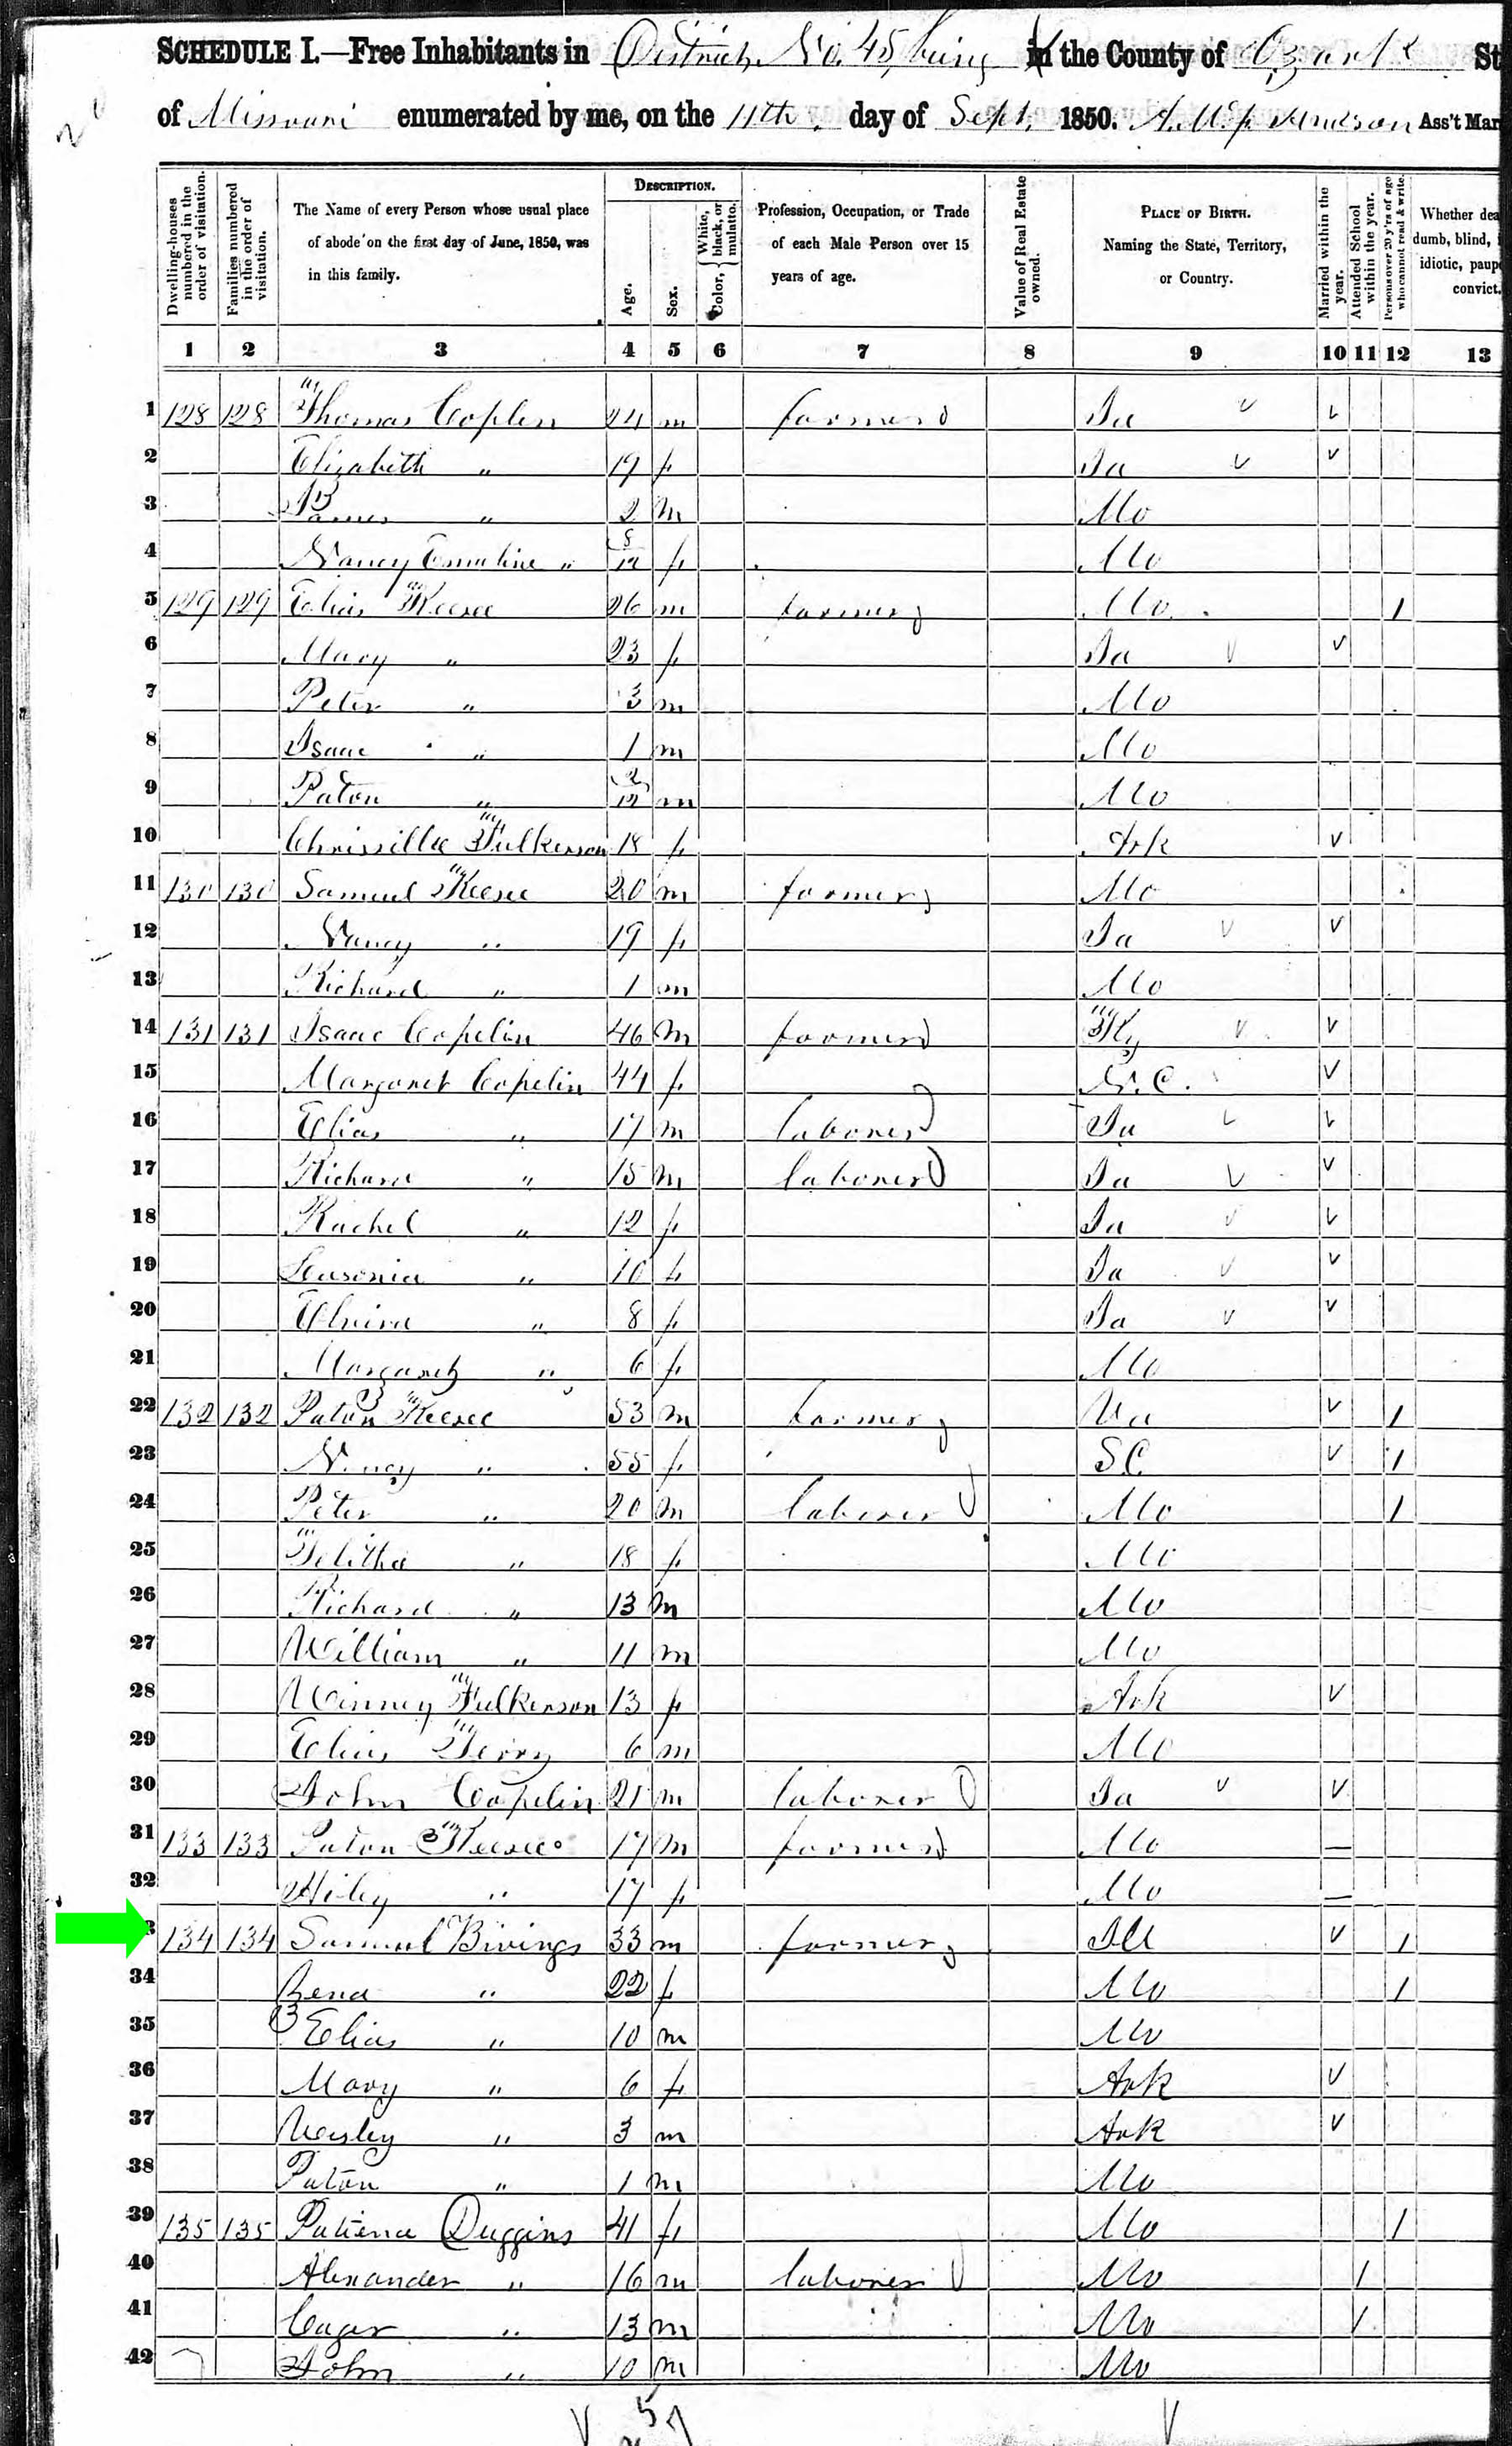 SCHEDULE I.—Free Inhabitants in District No. 45, being in the County of Ozark St
of Missouri enumerated by me, on the 11th. day of Sept. 1850. Ass't Mar
Dwelling-houses numbered in the order of visitation.
Families numbered in the order of visitation.
The Name of every Person whose usual place of abode on the first day of June, 1850, was in this family.
DESCRIPTION.
Age.
Sex.
Color, { White, black, or mulatto.
Profession, Occupation, or Trade of each Male Person over 15 years of age.
Value of Real Estate owned.
PLACE OF BIRTH. Naming the State, Territory, or Country.
Married within the year.
Attended School within the year.
Persons over 20 y'rs of age who cannot read & write.
Whether dea dumb, blind, idiotic, paup convict.
1 2 3 4 5 6 7 8 9 10 11 12 13
1 128 128 Thomas Coplin 24 m farmer Ia v v
2 Elizabeth " 19 f Ia v v
3 James " 2 m Mo
4 Nancy Emaline " 8/12 f Mo
5 129 129 Elias Keesee 26 m farmer Mo. 1
6 Mary " 23 f Ia v v
7 Peter " 3 m Mo
8 Isaac " 1 m Mo
9 Paton " 2/12 m Mo
10 Chrissilla Fulkerson 18 f Ark v
11 130 130 Samuel Keesee 20 m farmer Mo
12 Nancy " 19 f Ia v v
13 Richard " 1 m Mo
14 131 131 Isaac Copelin 46 m farmer Ky v v
15 Margaret Copelin 44 f N.C. v
16 Elias " 17 m laborer Ia v v
17 Richard " 15 m laborer Ia v v
18 Rachel " 12 f Ia v v
19 " 10 f Ia v v
20 Elvira " 8 f Ia v v
21 Margaret " 6 f Mo
22 132 132 Paton Keesee 53 m farmer Va v 1
23 Nancy " 55 f S.C. v 1
24 Peter " 20 m laborer Mo 1
25 Telitha " 18 f Mo
26 Richard " 13 m Mo
27 William " 11 m Mo
28 Winney Fulkerson 13 f Ark v
29 Elias Terry 6 m Mo
30 John Copelin 21 m laborer Ia v v
31 133 133 Paton Keesee 17 m farmer Mo —
32 Hiley " 17 f Mo —
3 134 134 Samuel Bivings 33 m farmer Ill v 1
34 Rena " 22 f Mo 1
35 Elias " 10 m Mo
36 Mary " 6 f Ark v
37 Wesley " 3 m Ark v
38 Paton " 1 m Mo
39 135 135 Patience Duggins 41 f Mo 1
40 Alexander " 16 m laborer Mo 1
41 Cager " 13 m Mo 1
42 John " 10 m Mo